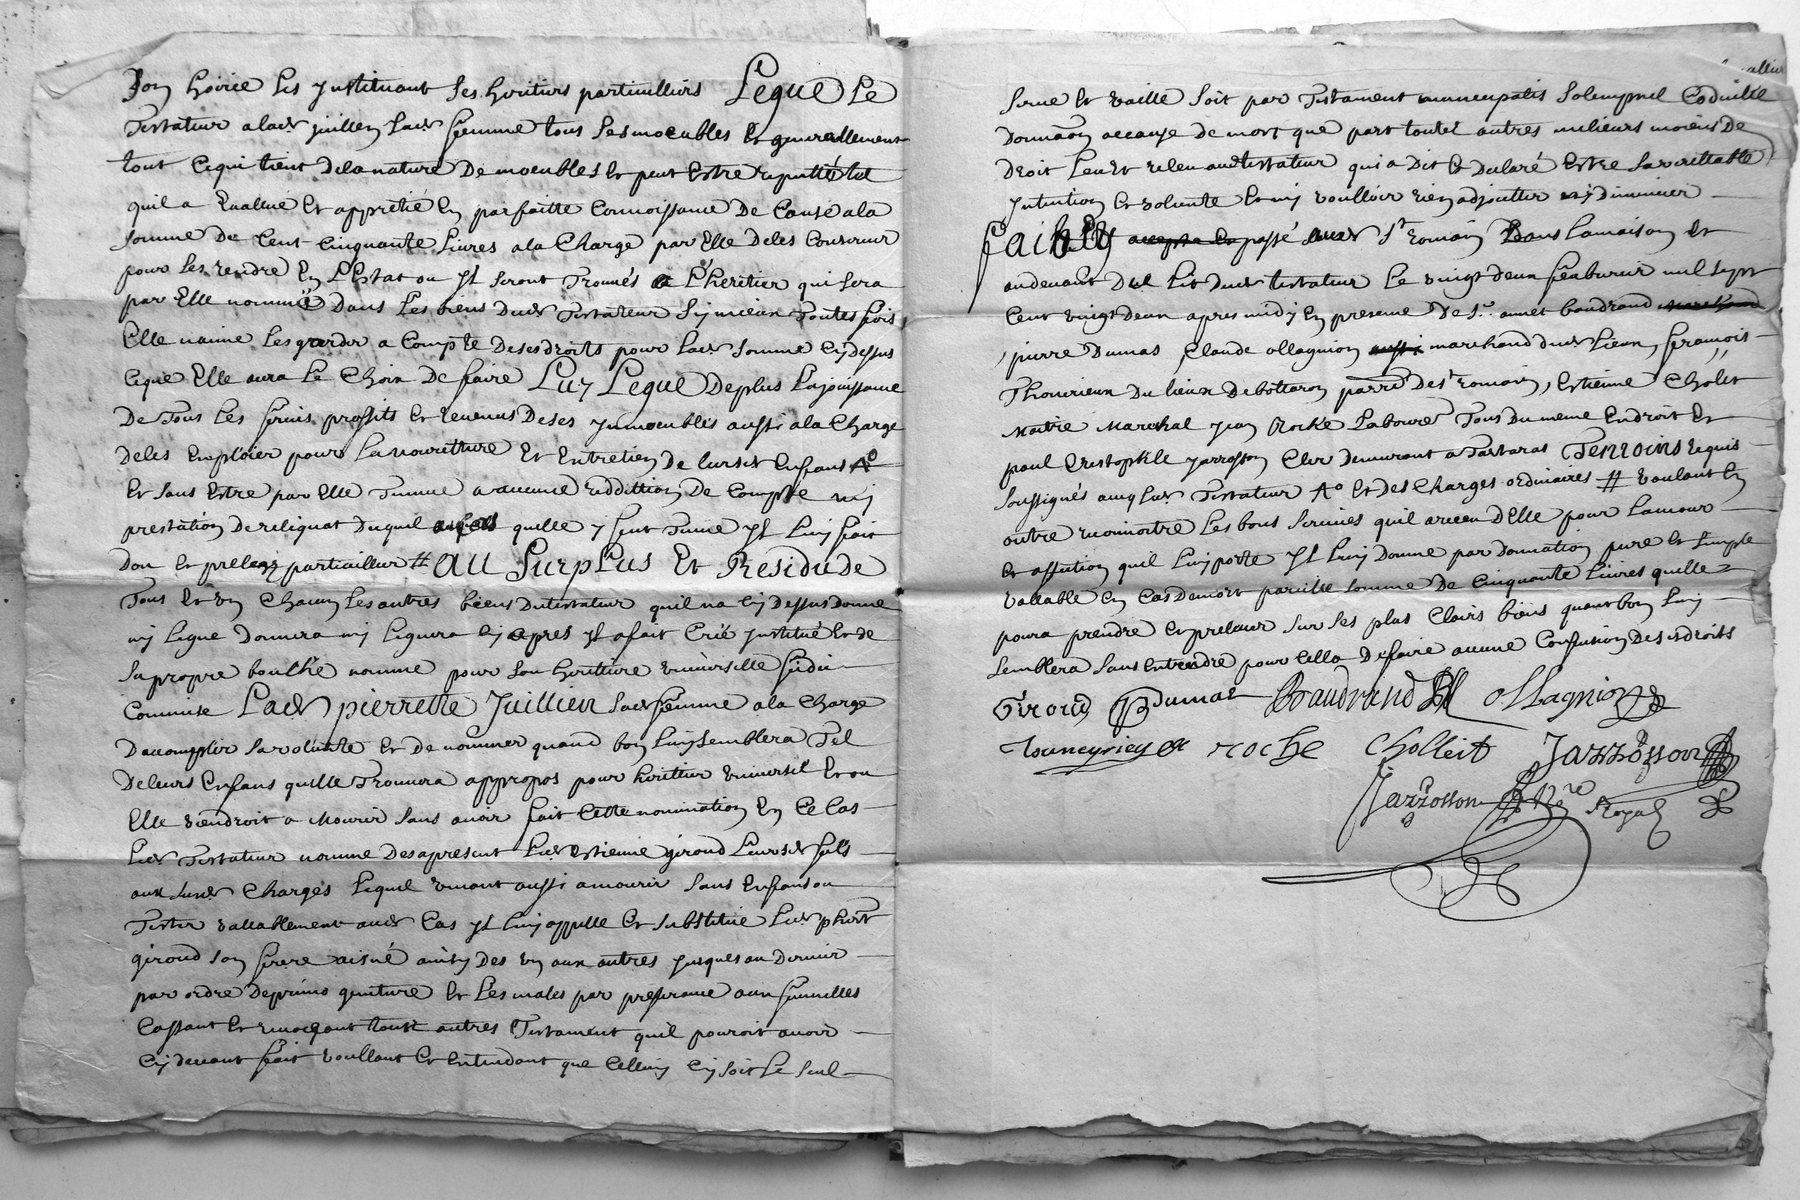 Son hoirie les instituant ses heritiers particulliers Legue Le
Testateur a lad. juillien sad. femme tous ses moeubles et generallement
tout cequi tient dela nature De moeubles et peut Estre reputté tel
quil a Evallue et appretié En parfaitte Connoissance De Cause ala
somme De Cent Cinquante Livres ala Charge par Elle Deles Conserver
pour les rendre En L'Estat ou Jl seront Trouvés a L'heritier qui sera
par Elle nommé Dans Les biens dud. Testateur sy mieux Toutesfois
Elle n'aime Les garder a Compte De ses droits pour lad. somme Cy dessus
Ceque Elle aura Le Choix De faire Luy Legue De plus La jouissance
De Tous Les fruis proffits et revenus De ses Jmmoeubles aussi ala Charge
Deles Emploier pour La nourritture Et Entretien De leursd. Enfans A°
Et sans Estre par Elle Tenue a aucune reddition De Compte ny
prestation De reliquat Duquel quelle y fut Tenue Jl Luy fait
Don et prelegs particullier # Au Surplus Et Residu De
Tous Et Un Chacun Les autres biens Du testateur quil na Cy Dessus Donne
ny Legue Donnera ny Leguera Cy apres Jl a fait Créé Jnstitué Et de
sa propre bouche nomme pour son heritiere universelle fidei
Commise Lad. pierrette Juillien sad. femme ala Charge
Daccomplir sa volonte Et De nommer quand bon Luy semblera Tel
De leurs Enfans quelle Trouvera appropos pour heritier universel Et ou
Elle viendroit a Mourir sans avoir fait Cette nomination En Ce Cas
Led. Testateur nomme Des apresent Led. Estienne giroud Leursd. fils
aux susd. Charges Lequel venant aussi a mourir sans Enfans ou
Tester vallablement aud. Cas Jl Luy appelle Et substitue Led.
giroud son frere aisné ainsy Des Un aux autres Jusques au Dernier
par ordre De primo geniture Et Les males par preferance aux femelles
Cassant Et revocquant tous autres Testament quil pouroit avoir
Cy devant fait voullant Et Entendant que Celluy Cy soit Le seul
serve Et vaille soit par Testament nuncupatif solempnel Codicille
Donnaôn accause de mort que part toutes autres milieurs moiens De
Droit Leu Et releu aud. testateur qui a Dit Et Declaré Estre sa veritable
Jntention Et volonte Et ny voulloir rien adjoutter ny Diminuer
fait Et passé aud. St romain Dans La maison Et
audevant Du Lit Dud. testateur Le vingt deux feabvrier mil sept
Cent vingt Deux apres midy En presence De Sr. annet baudrand
pierre Dumas Claude ollagnion marchand dud. Lieux, francois
Thouvrieux Du lieux De bottaron parr. De St romain, Estienne Cholet
Maitre Marechal Jean Roche Laboure Tous Du meme Endroit Et
paul Cristophle jarrosson Clerc Demeurant a Tartaras Temoins requis
soussignés avec Led. Testateur A° Et Des Charges ordinaires # voulant En
outre reconnoitre Les bons services quil a receu D'Elle pour Lamour
Et affection quil Luy porte Jl Luy Donne par Donnation pure Et simple
vallable En Cas De mort pareille somme De Cinquante Livres quelle
poura prendre Et prelever sur ses plus Clairs biens quant bon Luy
semblera sans Entendre pour Cella De faire aucune Confusion De ses droits
Giroud PDumas Baudrand Ollagnion
roche Cholleit Jarrosson
Jarrosson Nre Royal